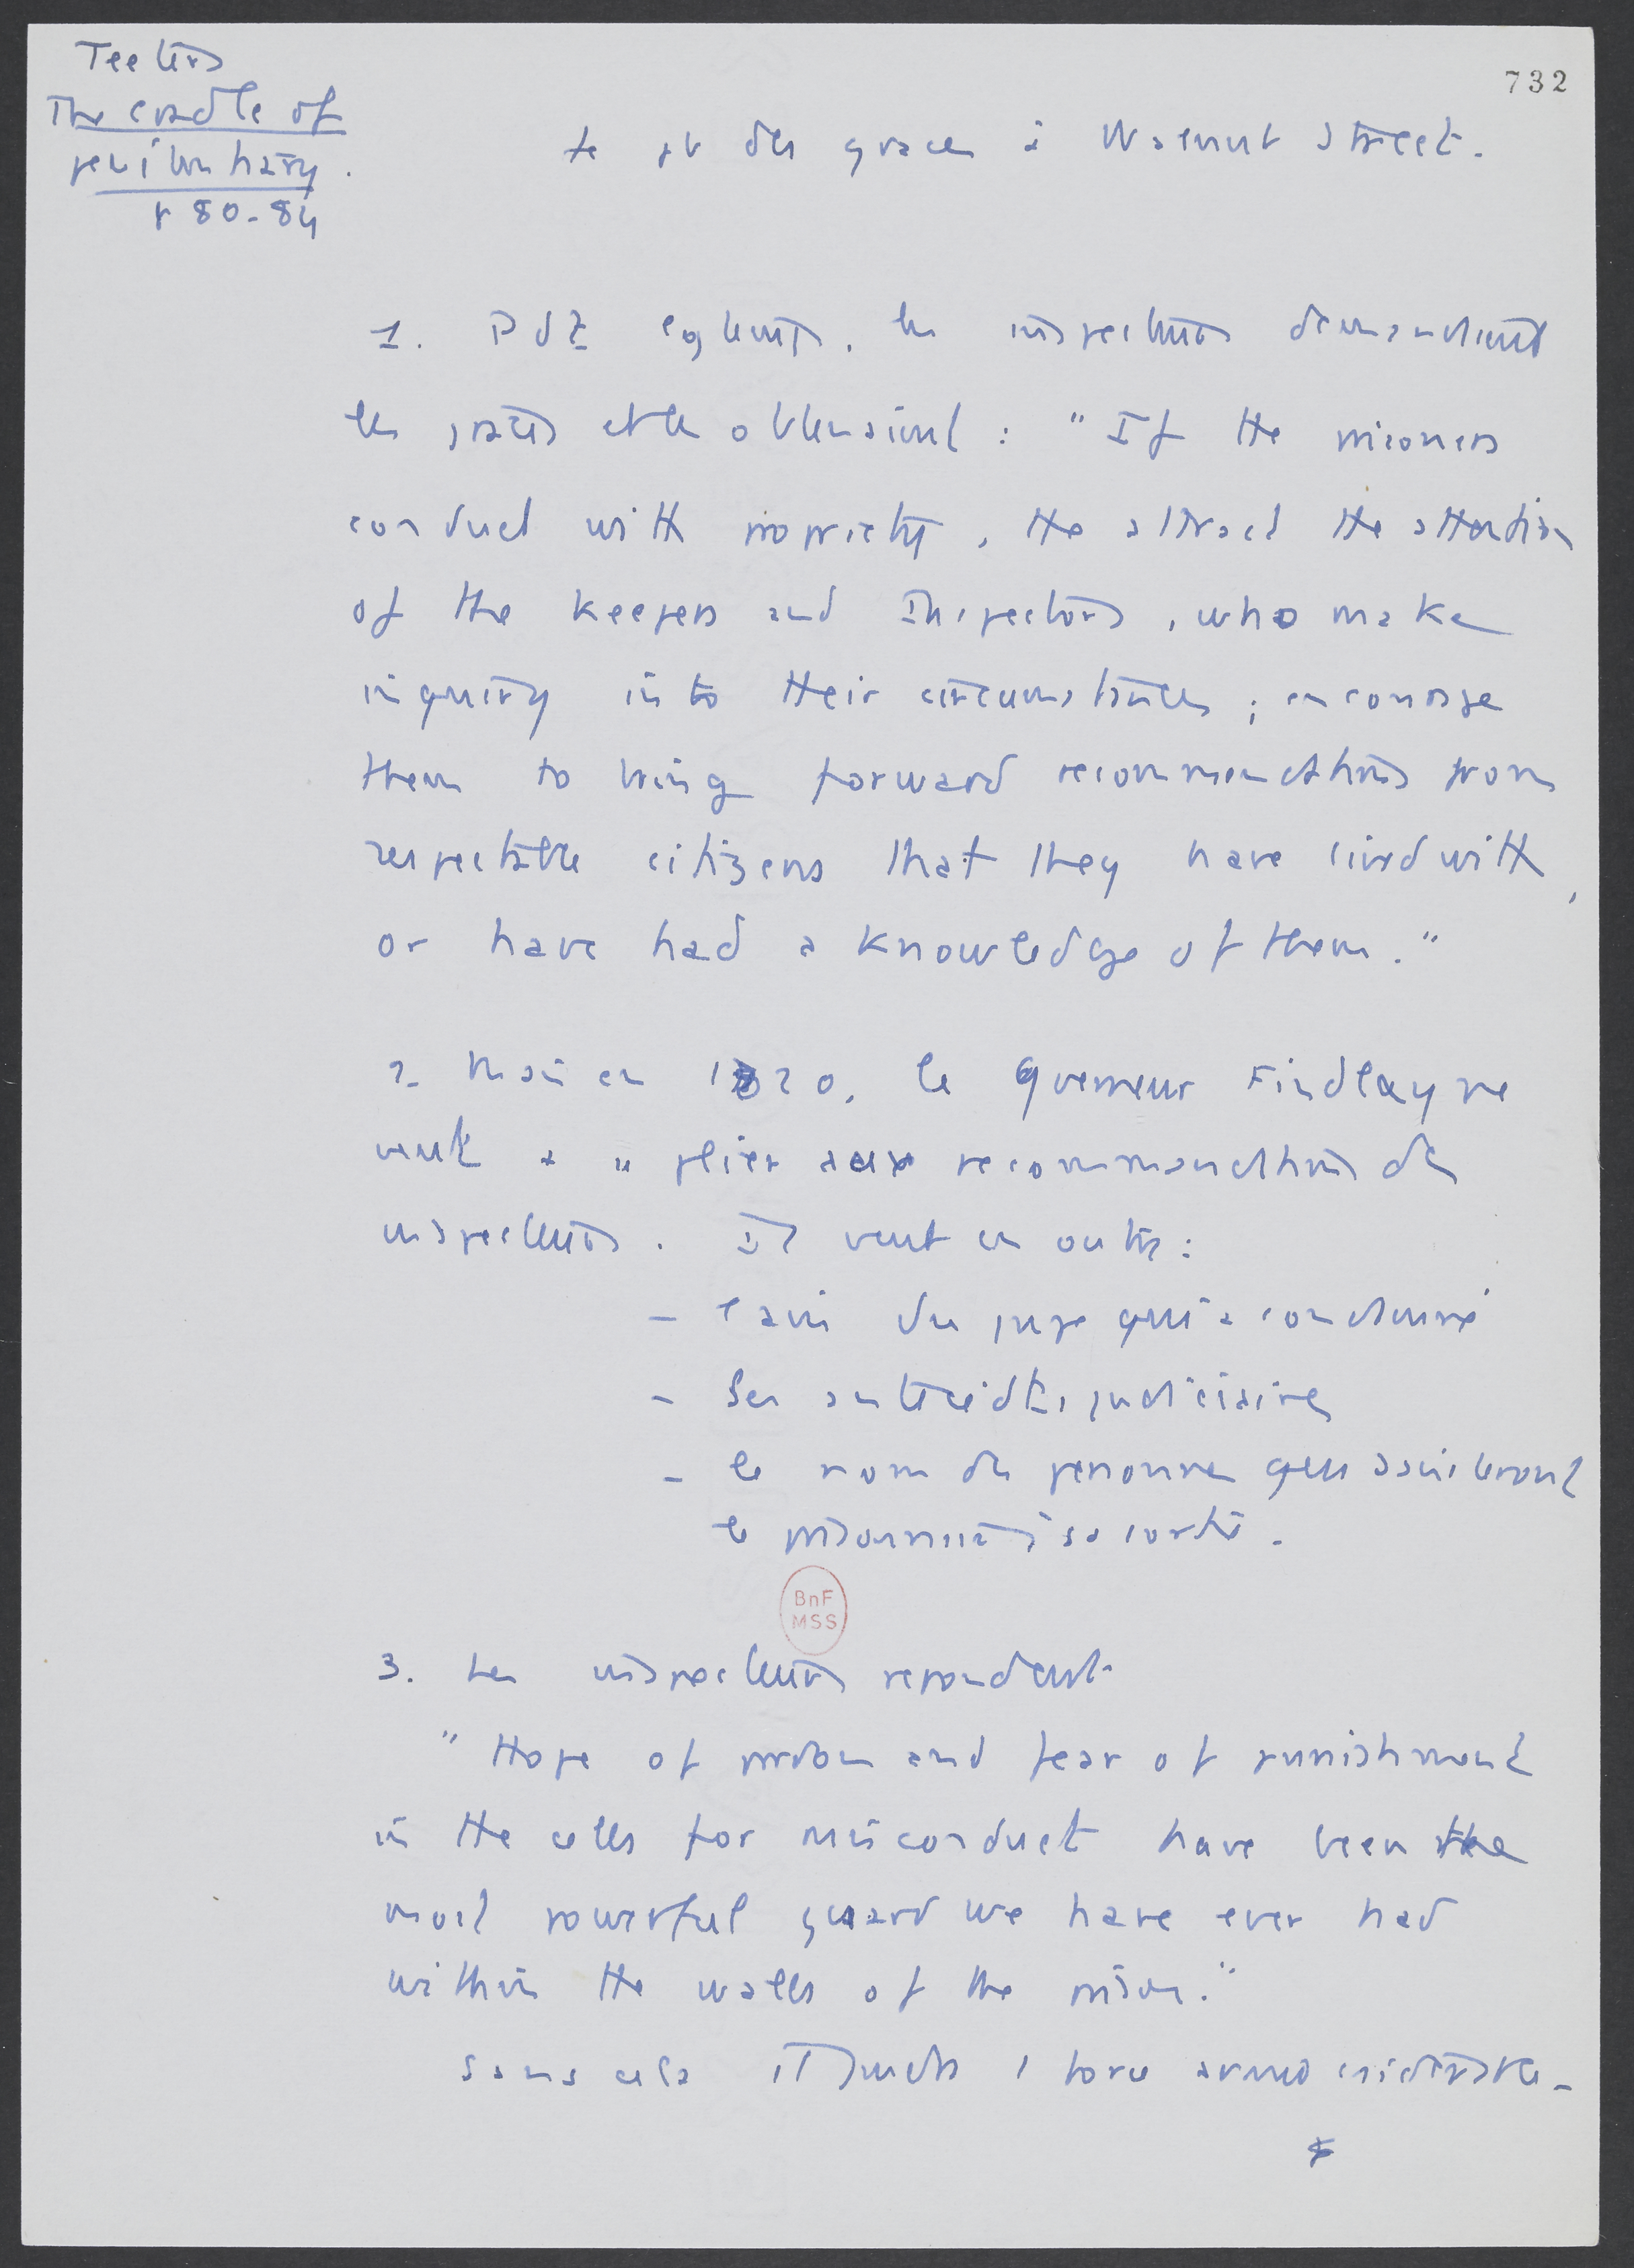 Teeters
The cradle of
penitentiary.
p 80-84
732
Le pb des graces à Walnut Street.
1. Pdt lgtemps, les inspecteurs demandaient
les graces et les obtenaient : "If the prisoners
conduct with propriety, the attract the attention
of the Keepers and Inspectors, who make
inquiry into their circumstances ; encourage
them to bring forward recommendations from
respectable citizens that they have lived with,
or have had a knowledge of them."
2. Mais en 1820, le gverneur Findlay ne
veut plier aux recommandations des
inspecteurs. Il veut en outre :
- l'avis du juge qui a condamné
- les antécédts judiciaires
- le nom des personnes qui assisteront
le prisonnier à sa sortie.
BnF
MSS
3. Les inspecteurs repondent
"Hope of pardon and fear of punishment
in the cells for misconduct have been the
most powerful guard we have ever had
within the walls of the prison."
Sans cela il faudra 1 force armée